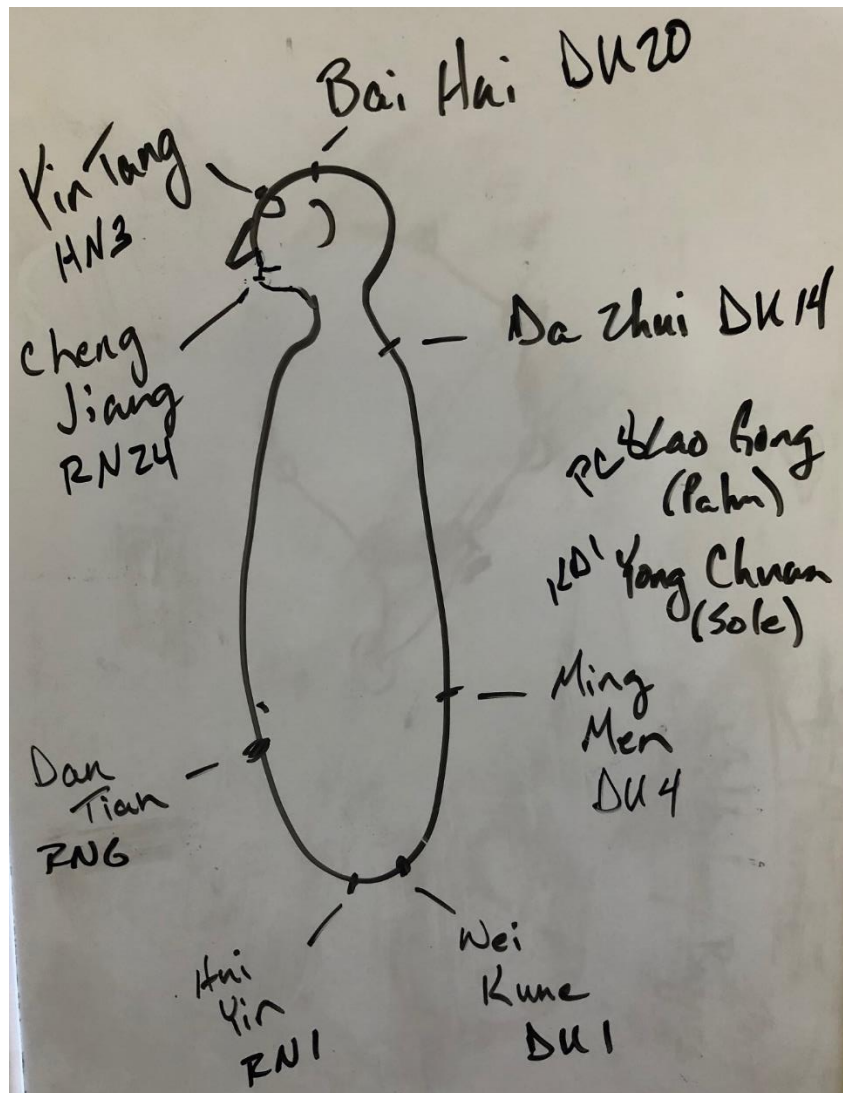 Bai Hui DU20
Yin Tang
HN3
Cheng
Jiang
RN24
Da Zhui DU14
PC8 Lao Gong
(Palm)
KD1 Yong Chuan
(Sole)
Ming
Men
DU4
Dan
Tian
RN6
Hui
Yin
RN1
Wei
DU1